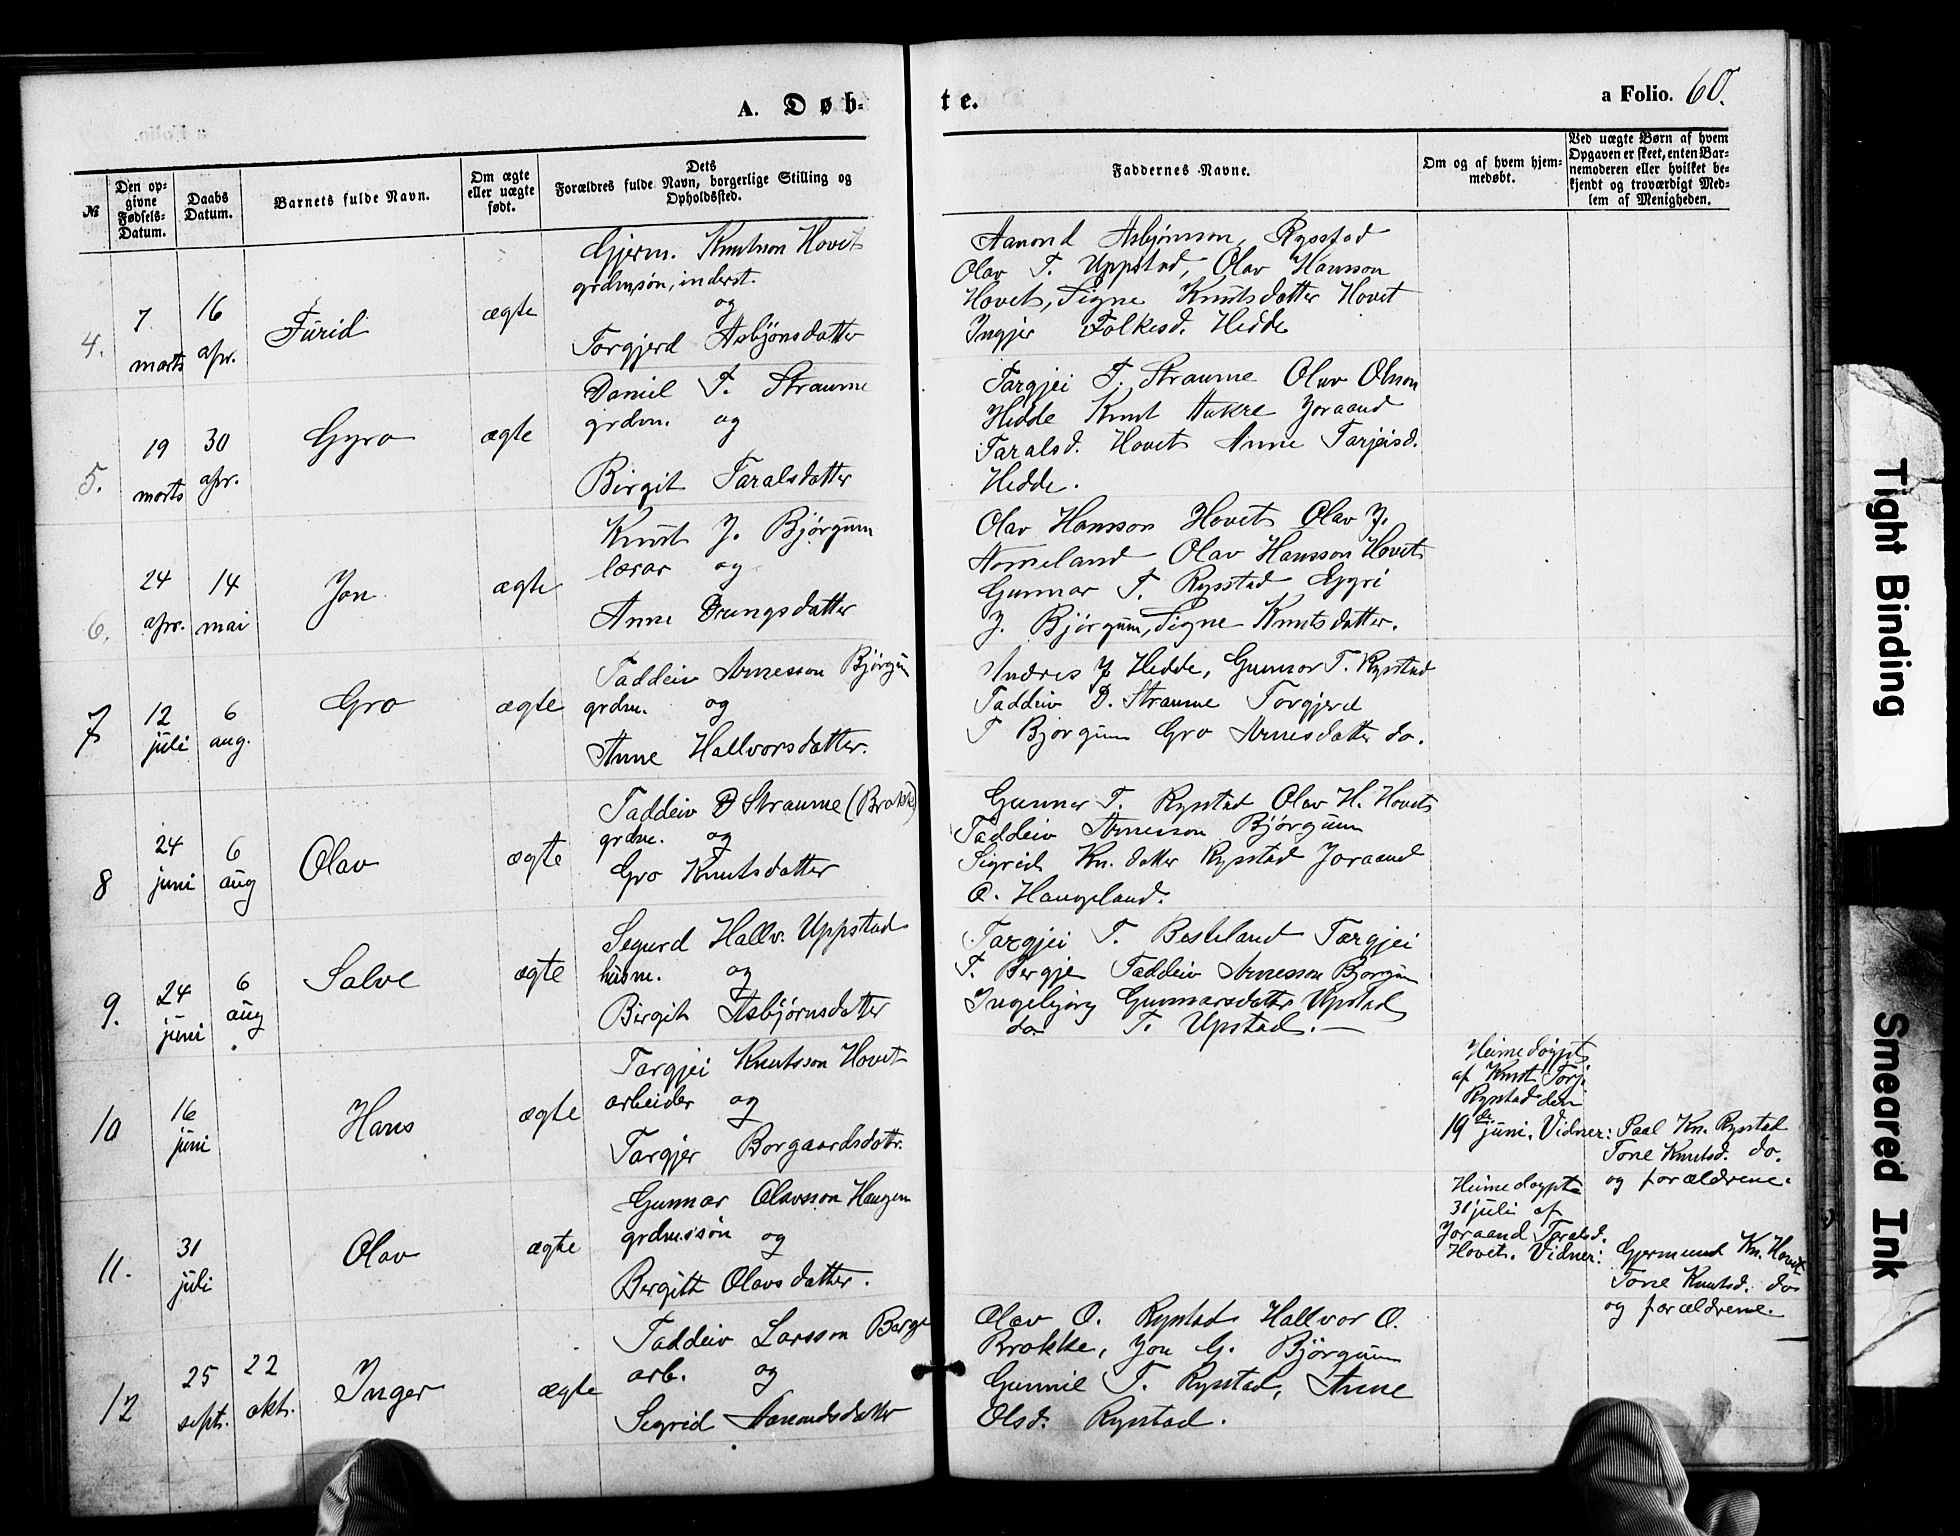 A. Døbte.
a Folio. 60.
№
Den opgivne Fødsels-Datum.
Daabs Datum.
Barnets fulde Navn.
Om ægte eller uægte født.
Dets Forældres fulde Navn, borgerlige Stilling og Opholdssted.
Faddernes Navne.
Om og af hvem hjemmedøbt.
Ved uægte Børn af hvem Opgaven er skeet, enten Barnemoderen eller hvilket bekjendt og troværdigt Medlem af Menigheden.
4.
7 morts
16 apr.
Turid
ægte
Gjerm. Knutson Hovet
grdmsøn, inderst.
og
Torgjerd Asbjønsdatter
Aanond Asbjørnson, Rysstad
Olav T. Uppstad, Olav Hansson
Hovet, Signe Knutsdatter Hovet
Ingjer Folkesd. Hedde
5.
19 morts
30 apr.
Gyro
ægte
Daniel T. Straume
grdm. og
Birgit Taralsdatter
Targjei T. Straume Olav Olson
Hedde Knut Aakre Joraand
Taralsd. Hovet Anne Tarjeisd.
Hedde.
6.
24 apr.
14 mai
Jon
ægte
Knut J. Bjørgum
lærar og
Anne Drengsdatter
Olav Hansson Hovet Olav J.
Homeland Olav Hansson Hovet
Gunnar T. Rysstad Gyri
J. Bjørgum, Signe Knutsdatter.
7
12 juli
6 aug.
Gro
ægte
Taddeiv Arnesson Bjørgum
grdm. og
Anne Hallvorsdatter.
Andres J Hedde, Gunnar T. Rysstad
Taddeiv D. Straume Torgjerd
T Bjørgum Gro Arnesdatter do.
8
24 juni
6 aug
Olav
ægte
Taddeiv D Straume (Brokke)
grdm. og
Gro Knutsdatter
Gunnar T. Rysstad Olav H. Hovet
Taddeiv Arnesson Bjørgum
Sigrid Kn. datter Rysstad Joraand
O. Haugeland.
9.
24 juni
6 aug
Salve
ægte
Segurd Hallv. Uppstad
husm. og
Birgit Asbjørnsdatter
Targjei T. Besteland Targjei
T. Bergje Taddeiv Arnesson Bjørgum
Ingebjørg Gunnarsdatter Upstad
do T. Upstad. —
10
16 juni
Hans
ægte
Targjei Knutsson Hovet
arbeider og
Targjer Borgaardsdottr.
Heimedøypt
af Knut Torj.
Rysstad den
19de juni. Vidner: Paal Kn. Rystad
Tone Knutsd. do.
og forældrene.
11.
31 juli
Olav
ægte
Gunnar Olavsson Haugen
grdmssøn og
Bergitt Olavsdatter.
Heimedøypt
31 juli af
Joraand Taralsd.
Hovet. Vidner: Gjermund Kn. Hovet
Tone Knutsd. do
og forældrene.
12
25 sept.
22 okt.
Inger
ægte
Taddeiv Larsson Barge
arb. og
Segrid Aanondsdatter
Olav O. Rysstad Hallvor O.
Brokke, Jon G. Bjørgum
Gunnil T. Rysstad, Anne
Olsd. Rysstad.
Tight Binding
Smeared Ink